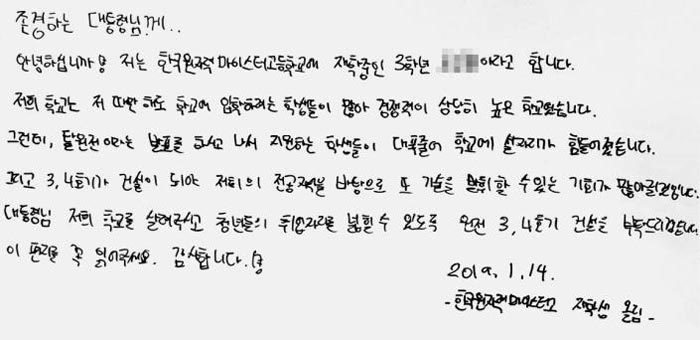 존경하는 대통령님께..
안녕하십니까 저는 한국원자력마이스터고등학교에 재학중인 3학년 이라고 합니다.
저희 학교는 저 때만 해도 학교에 입학하려는 학생들이 많아 경쟁력이 상당히 높은 학교였습니다.
그런데, 탈원전이라는 발표를 하고 나서 지원하는 학생들이 대폭줄어 학교에 살리기가 힘들어졌습니다.
그리고 3,4호기가 건설이 되야 저희의 전공지식을 바탕으로 또 기술을 발휘할 수 있는 기회가 많아질것입니다.
대통령님 저희 학교를 살려주시고 청년들의 취업자리를 넓힐 수 있도록 원전 3,4호기 건설을 부탁드리겠습니다.
이 편지를 꼭 읽어주세요. 감사합니다.
2019. 1. 14.
-한국원자력마이스터고 재학생 올림-